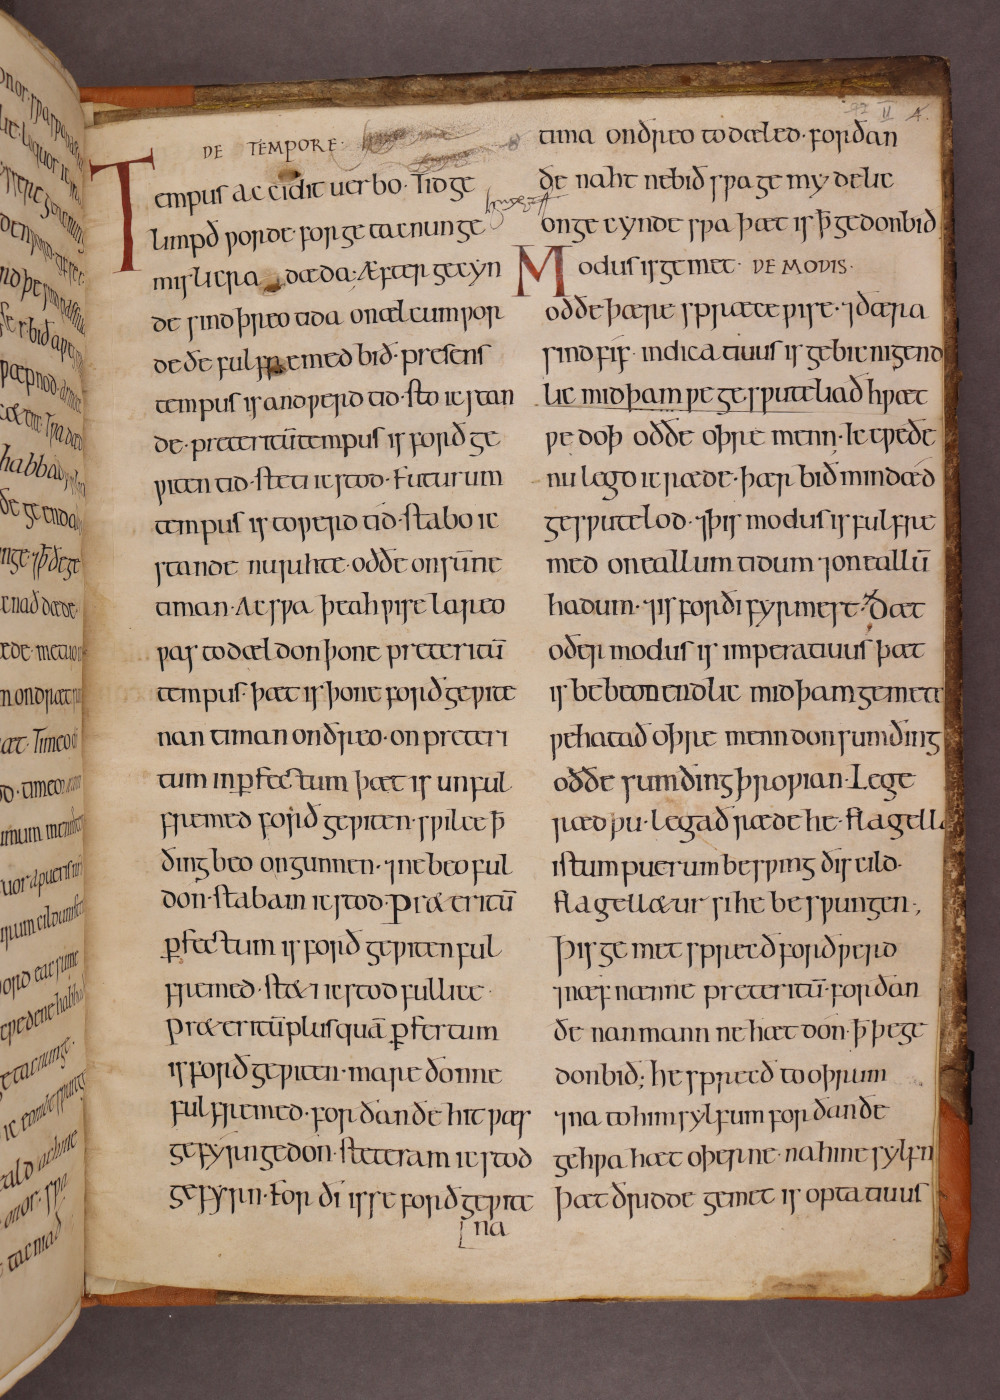 DE TEMPORE·
Tempus accidit uerbo· Tid ge
limpð ƿorde· for getacnunge
mislicra dæda· Æfter gecyn
de sind þreo tida on ælcum ƿor
de ðe fulfremed bið· presens
tempus is andƿerd tid· sto ic stan
de· preteritū tempus is forðge
ƿiten tid· steti ic stod· Futurum
tempus is toƿerd tid· stabo ic
stande nu rihte· oððe on sūne
timan· Ac sƿa þeah ƿise lareo
ƿas todældon þone preteritū
tempus· þæt is þone forðgeƿite
nan timan on ðreo· on preteri
tum inꝑfectum þæt is unful
fremed forðgeƿiten· sƿilce ꝥ
ðing beo ongunnen· ⁊ ne beo ful
don· stabam ic stod· Præteritū
ꝑfectum is forðgeƿiten ful
fremed· steti ic stod fullice·
Præteritū plusquā ꝑfectum
is forðgeƿiten· mare ðonne
fulfremed· for ðan ðe hit ƿæs
gefyrn gedon· steteram ic stod
gefyrn· For ði is se forðgeƿite
[na
97 II 4.
tima on ðreo todæled· for ðan
ðe naht ne bið sƿa gemyndelic
on gecynde sƿa þæt is ꝥ gedon bið
Modus is gemet· DE MODIS·
oððe þære spræce ƿise· ⁊ ðæra
sind fif· indicatiuus is gebicnigend
lic mid þam ƿe gesƿuteliað hƿæt
ƿe doþ oððe oþre menn· Ic cƿeðe
nu lego ic ræde· þær bið min dæd
gesƿutelod· ⁊ þis modus is fulfre
med on eallum tidum ⁊ on eallū
hadum· ⁊ is for ði fyrmest· Ðæt
oðer modus is imperatiuus þæt
is bebeonendlic mid þam gemete
ƿe hatað oþre menn don sum ðing
oððe sum ðing þroƿian· Lege
ræd þu· legad ræde he· flagella
istum puerum besƿing ðis cild·
flagelletur si he besƿungen·,
Þis gemet sprecð forðƿerd
⁊ næf nænne preteritū· for ðan
ðe nan mann ne hæt don· ꝥ þe ge
don bið; he sprecð to oþrum
⁊ na to him sylfum for ðan ðe
gehƿa hæt oþerne· na hine sylfn
Þæt ðridde gemet is optatiuus